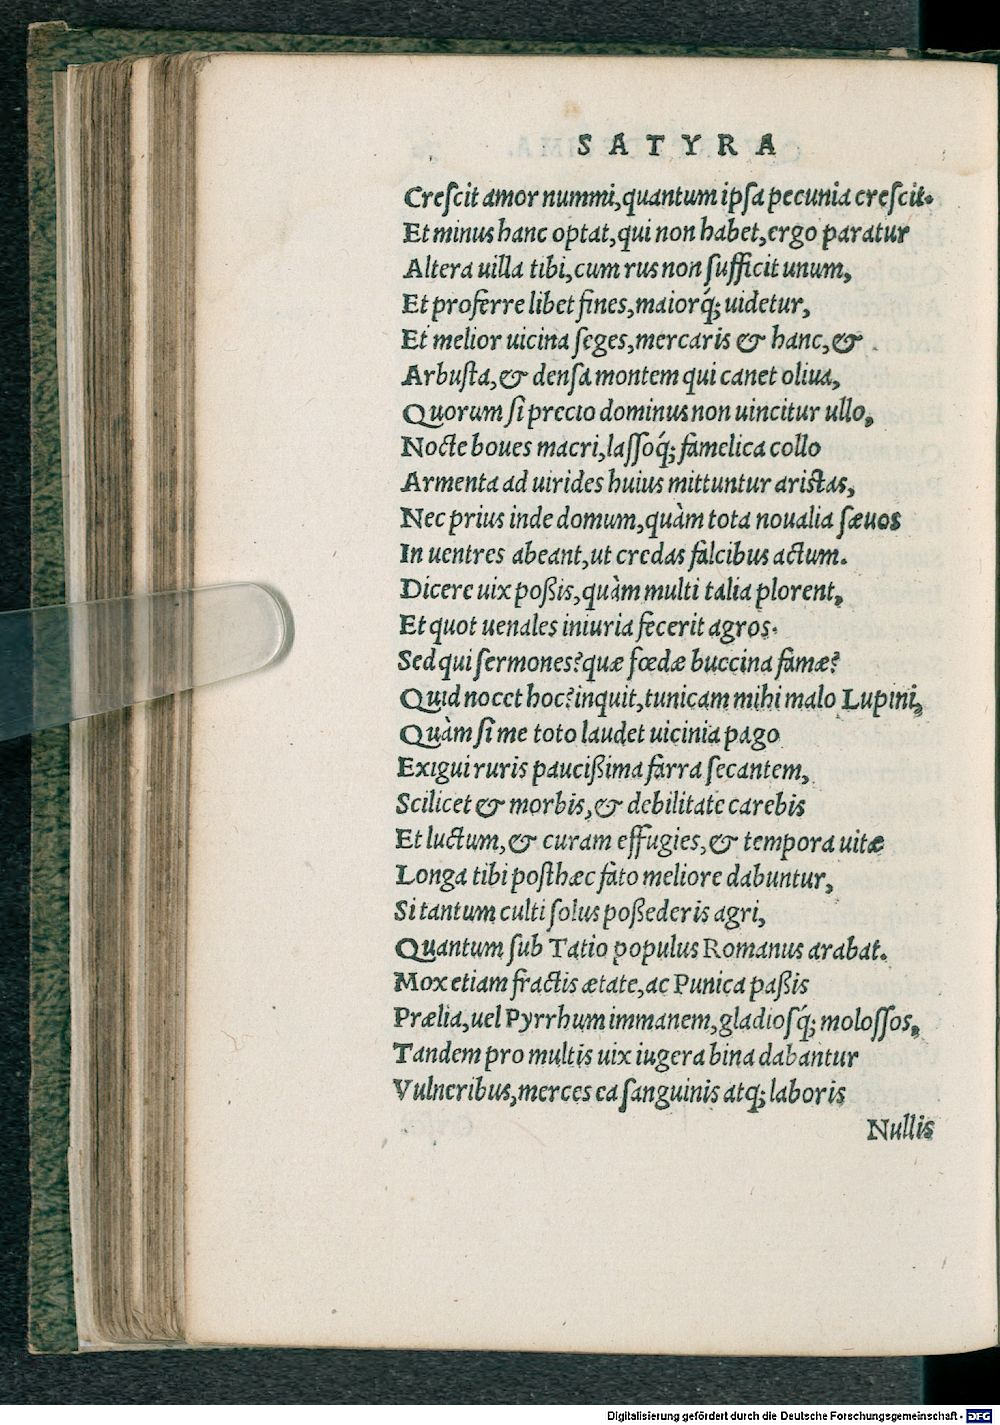 SATYRA
Creſcit amor nummi,quantum ipſa pecunia creſcit.
Et minus hanc optat,qui non habet,ergo paratur
Altera uilla tibi,cum rus non ſufficit unum,
Et proferre libet fines,maiorq́; uidetur,
Et melior uicina ſeges,mercaris & hanc,&
Arbuſta,& denſa montem qui canet oliua,
Quorum ſi precio dominus non uincitur ullo,
Nocte boues macri,laſſoq́; famelica collo
Armenta ad uirides huius mittuntur ariſtas,
Nec prius inde domum,quàm tota noualia ſæuos
In uentres abeant,ut credas falcibus actum.
Dicere uix poßis,quàm multi talia plorent,
Et quot uenales iniuria fecerit agros.
Sed qui ſermones?quæ fœdæ buccina famæ?
Quid nocet hoc?inquit,tunicam mihi malo Lupini,
Quàm ſi me toto laudet uicinia pago
Exigui ruris paucißima farra ſecantem,
Scilicet & morbis,& debilitate carebis
Et luctum,& curam effugies,& tempora uitæ
Longa tibi poſthæc fato meliore dabuntur,
Si tantum culti ſolus poßederis agri,
Quantum ſub Tatio populus Romanus arabat.
Mox etiam fractis ætate,ac Punica paßis
Prælia,uel Pyrrhum immanem,gladioſq́; moloſſos,
Tandem pro multis uix iugera bina dabantur
Vulneribus,merces ea ſanguinis atq; laboris
Nullis
Digitalisierung gefördert durch die Deutsche Forschungsgemeinschaft - DFG